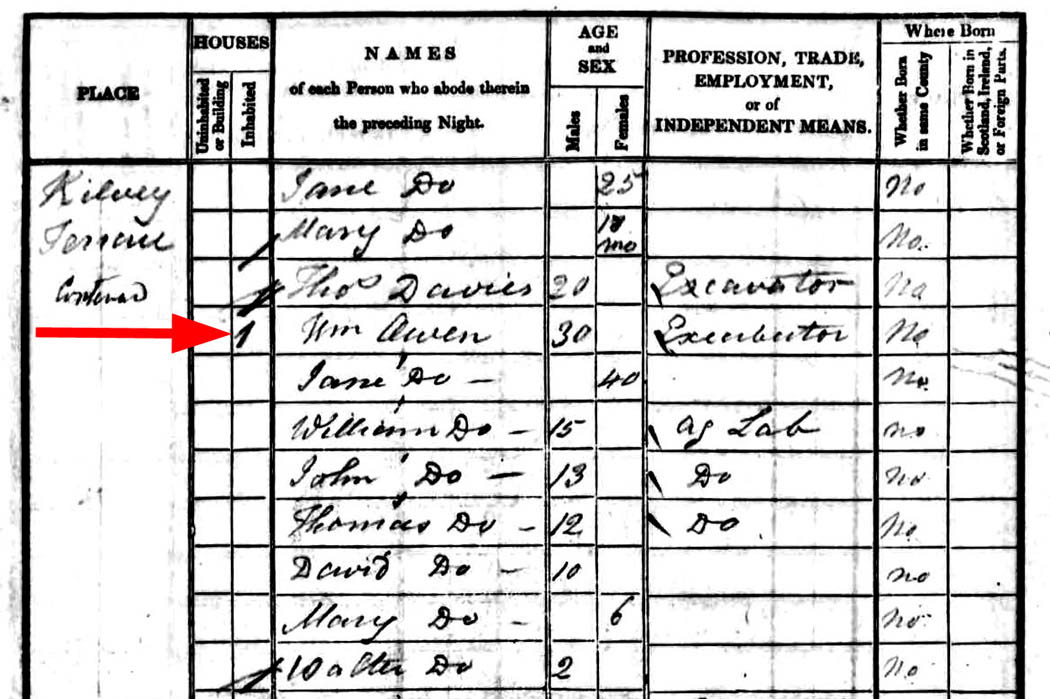 PLACE
HOUSES
Uninhabited
or Building
Inhabited
NAMES
of each Person who abode therein
the preceding Night.
AGE
and
SEX
Males
Females
PROFESSION, TRADE,
EMPLOYMENT,
or of
INDEPENDENT MEANS.
Where Born
Whether Born
in same County
Whether Born in
Scotland, Ireland,
or Foreign Parts.
Kilvey Jane Do 25 No
Terrace Mary Do mo No.
Thos Davies 20 Excavator No
1 Wm Owen 30 No
Jane Do – 40 No.
William Do – 15 Ag Lab no
John Do – 13 Do No
Thomas Do – 12 Do No
David Do – 10 no
Mary Do – 6 no
Walter Do 2 No